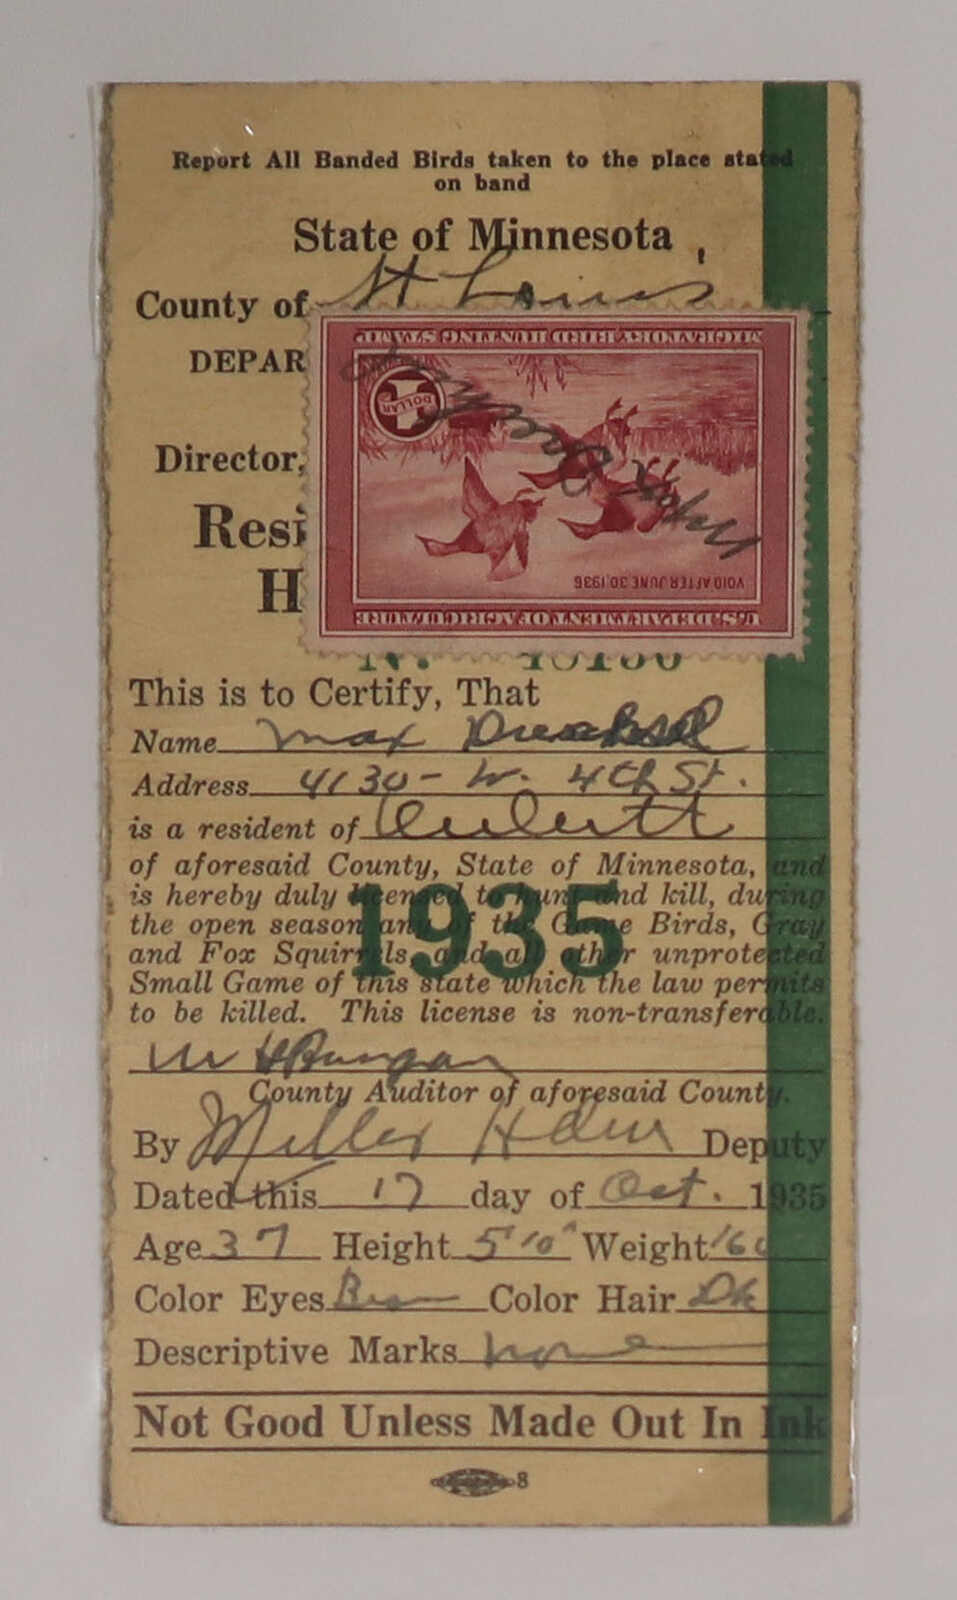 Report All Banded Birds taken to the place stated
on band
State of Minnesota
County of St Louis
DEPAR
Director,
Resi
H
MIGRATORY BIRD HUNTING STAMP
1 DOLLAR
Max
VOID AFTER JUNE 30, 1936
U.S. DEPARTMENT OF AGRICULTURE
This is to Certify, That
Name Max
Address 4130 - W. 4th St.
is a resident of
of aforesaid County, State of Minnesota, and
is hereby duly licensed to hunt and kill, during
the open season any of the Game Birds, Gray
and Fox Squirrels, and all other unprotected
Small Game of this state which the law permits
to be killed. This license is non-transferable.
1935
County Auditor of aforesaid County.
By Deputy
Dated this 17 day of Oct. 1935
Age 37 Height 5'10" Weight 160
Color Eyes Color Hair Dk
Descriptive Marks none
Not Good Unless Made Out In Ink
8